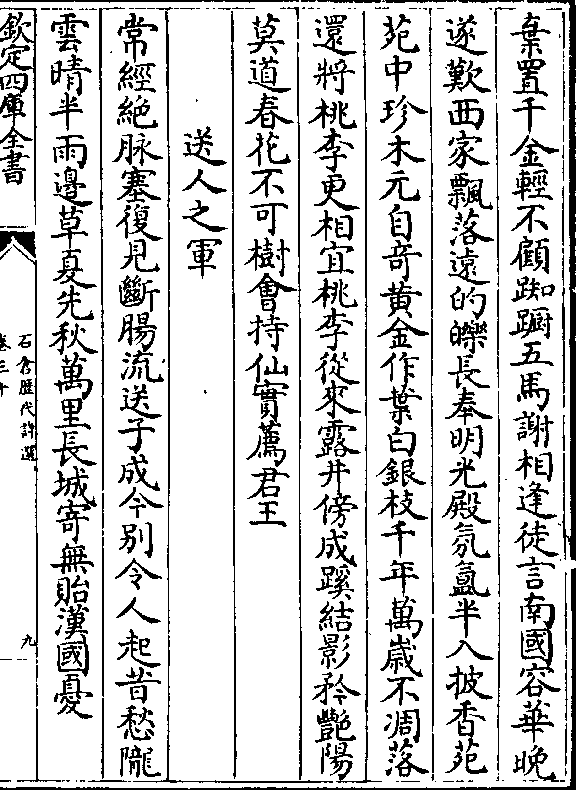 棄置千金輕不顧踟躕五馬謝相逢徒言南國容華晚
遂歎西家飄落遠的皪長奉明光殿氛氳半入披香苑
苑中珍木元自竒黄金作葉白銀枝千年萬嵗不凋落
還將桃李更相宜桃李從來露井傍成蹊結影矜艶陽
莫道春花不可樹㑹持仙實薦君王
送人之軍
常經絶脉塞復見斷腸流送子成今别令人起昔愁隴
雲晴半雨邉草夏先秋萬里長城寄無貽漢國憂
欽定四庫全書
石倉歴代詩選
卷三十
九